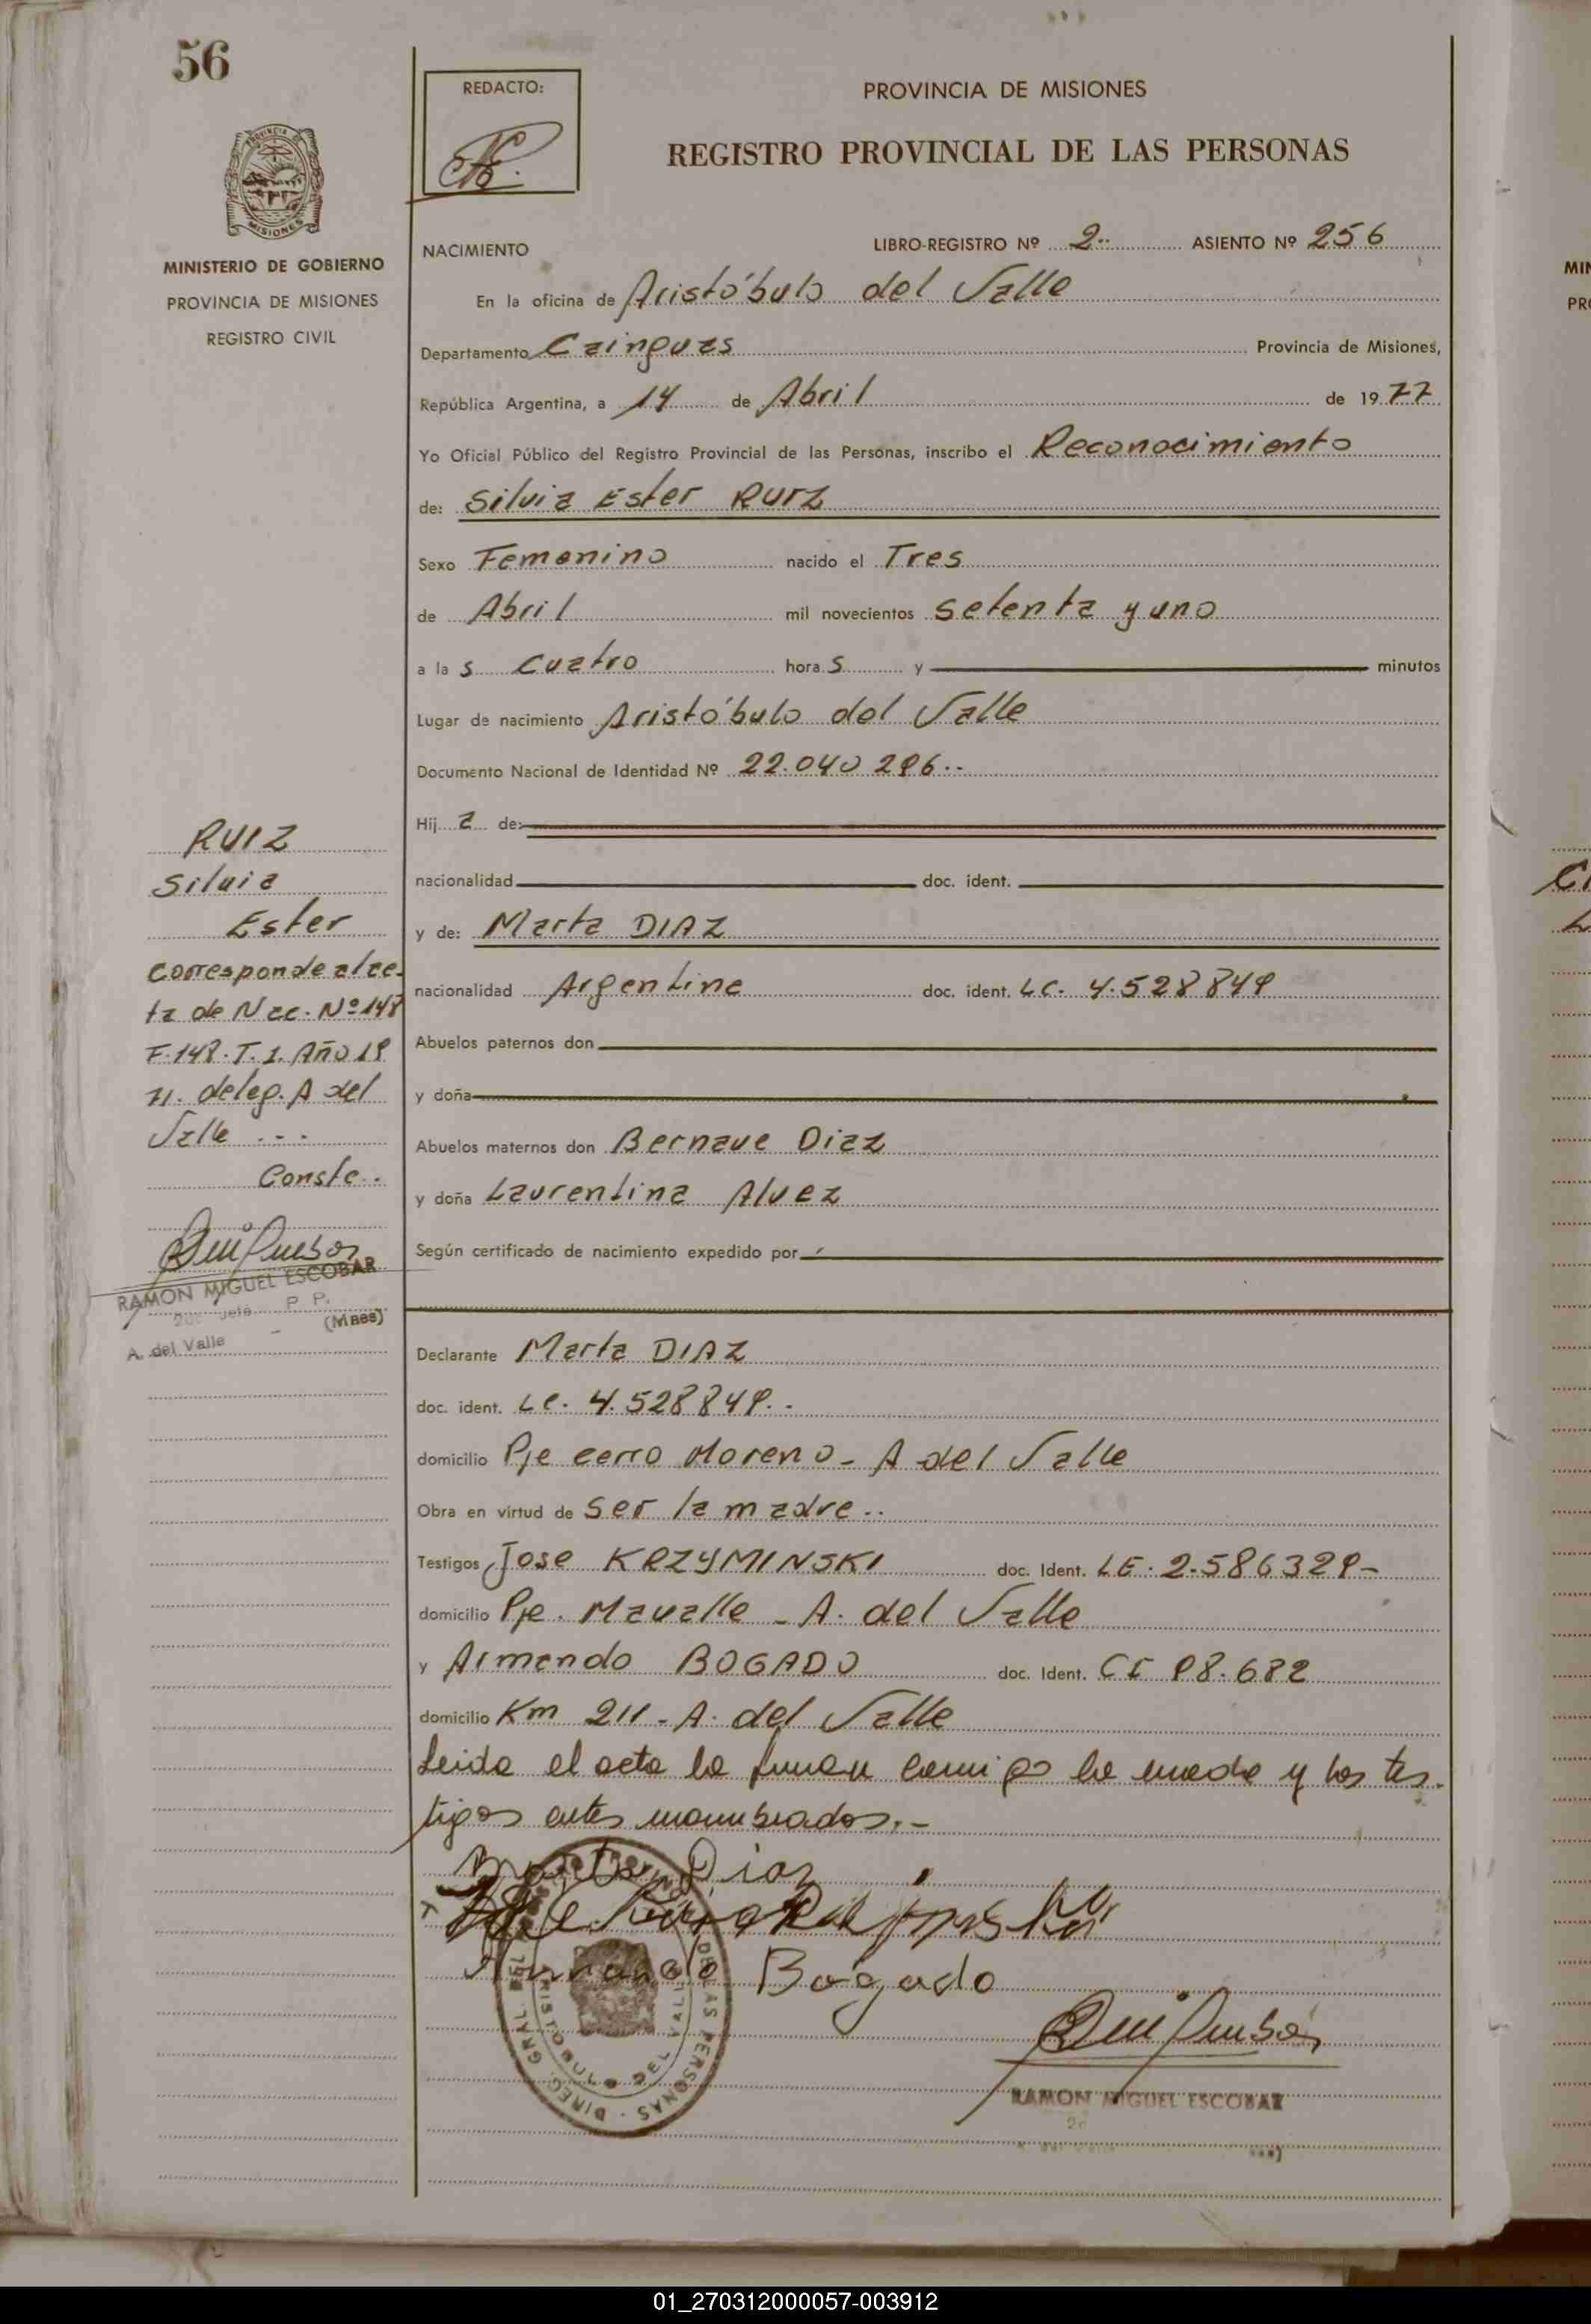 56
REDACTO:
PROVINCIA DE MISIONES
REGISTRO PROVINCIAL DE LAS PERSONAS
MISIONES
MINISTERIO DE GOBIERNO
PROVINCIA DE MISIONES
REGISTRO CIVIL
NACIMIENTO
LIBRO-REGISTRO Nº 2 ASIENTO Nº 256
En la oficina de Aristóbulo del Valle
Departamento Cainguas Provincia de Misiones,
República Argentina, a 14 de Abril de 1977
Yo Oficial Público del Registro Provincial de las Personas, inscribo el Reconocimiento
de: Silvia Ester RUIZ
Sexo Femenino nacido el Tres
de Abril mil novecientos setenta y uno
a la s cuatro hora s y minutos
Lugar de nacimiento Aristóbulo del Valle
Documento Nacional de Identidad Nº 22.040 296
Hij a de:
nacionalidad doc. ident.
y de: Marta DIAZ
nacionalidad Argentina doc. ident. LC. 4.528849
Abuelos paternos don
y doña
Abuelos maternos don Bernave Diaz
y doña Laurentina Alvez
Según certificado de nacimiento expedido por
RUIZ
Silvia
Ester
Corresponde al ac-
ta de Nac. Nº 148
F. 148. T. 1. Año 19
71. deleg. A del
Valle ...
Conste..
RAMON MIGUEL ESCOBAR
(Mnes)
A. del Valle
Declarante Marta DIAZ
doc. ident. LC. 4.528849..
domicilio Pje cerro Moreno - A del Valle
Obra en virtud de ser la madre..
Testigos Jose KRZYMINSKI doc. Ident. LE. 2.586329-
domicilio Pje. Mavalle - A. del Valle
y Armando BOGADO doc. Ident. CI 98.682
domicilio Km 211 - A. del Valle
Leida el acta la firman conmigo la madre y los tes-
tigos antes nombrados.-
Marta Diaz
Armando Bogado
DIREC. GRAL. DEL DE LAS PERSONAS
ARISTOBULO DEL VALLE
RAMON MIGUEL ESCOBAR
01_270312000057-003912